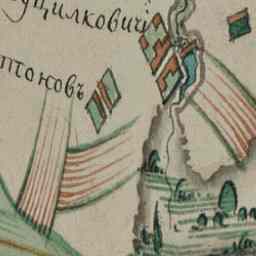 ущилковичи
птоновъ